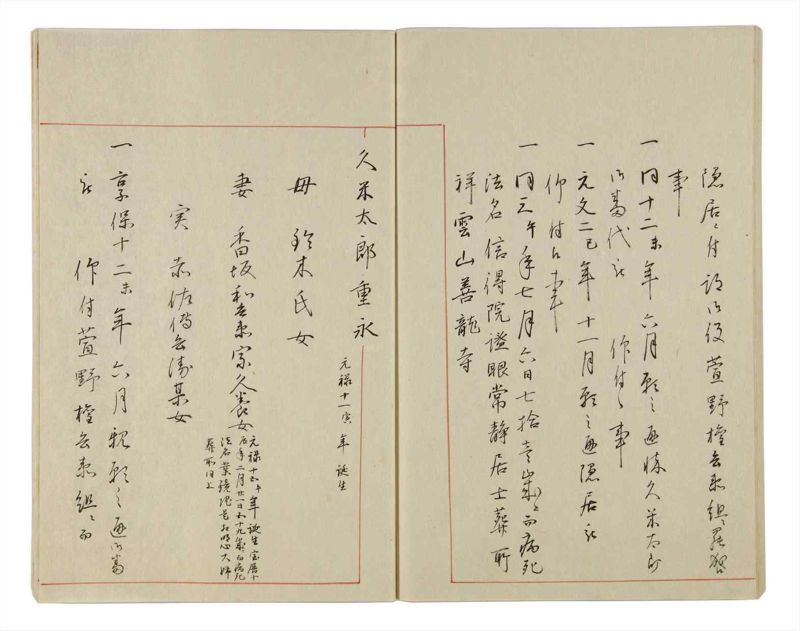 隠居被 付 御役 萱野権兵衛組ニ罷
事
一 同十二未年 六月願之通 久米太郎
御番代被 仰付候事
一 元文二巳年 十一月願之通隠居被
仰付候事
一 同三午年七月六日七拾壱歳ニ而病死
法名 信得院證眼常静居士葬所
祥雲山善龍寺
久米太郎重永
元禄十一寅年 誕生
母 鈴木氏女
妻 香坂和吉衛家久養女
元禄十五午年誕生宝暦十
辰年二月廿一日五十九歳ニ而病死
法名 葉鏡院 明心大姉
葬所同上
実 赤佐傳兵衛某女
一 享保十二未年 六月親願之通御番
被 仰付萱野権兵衛組ニ而